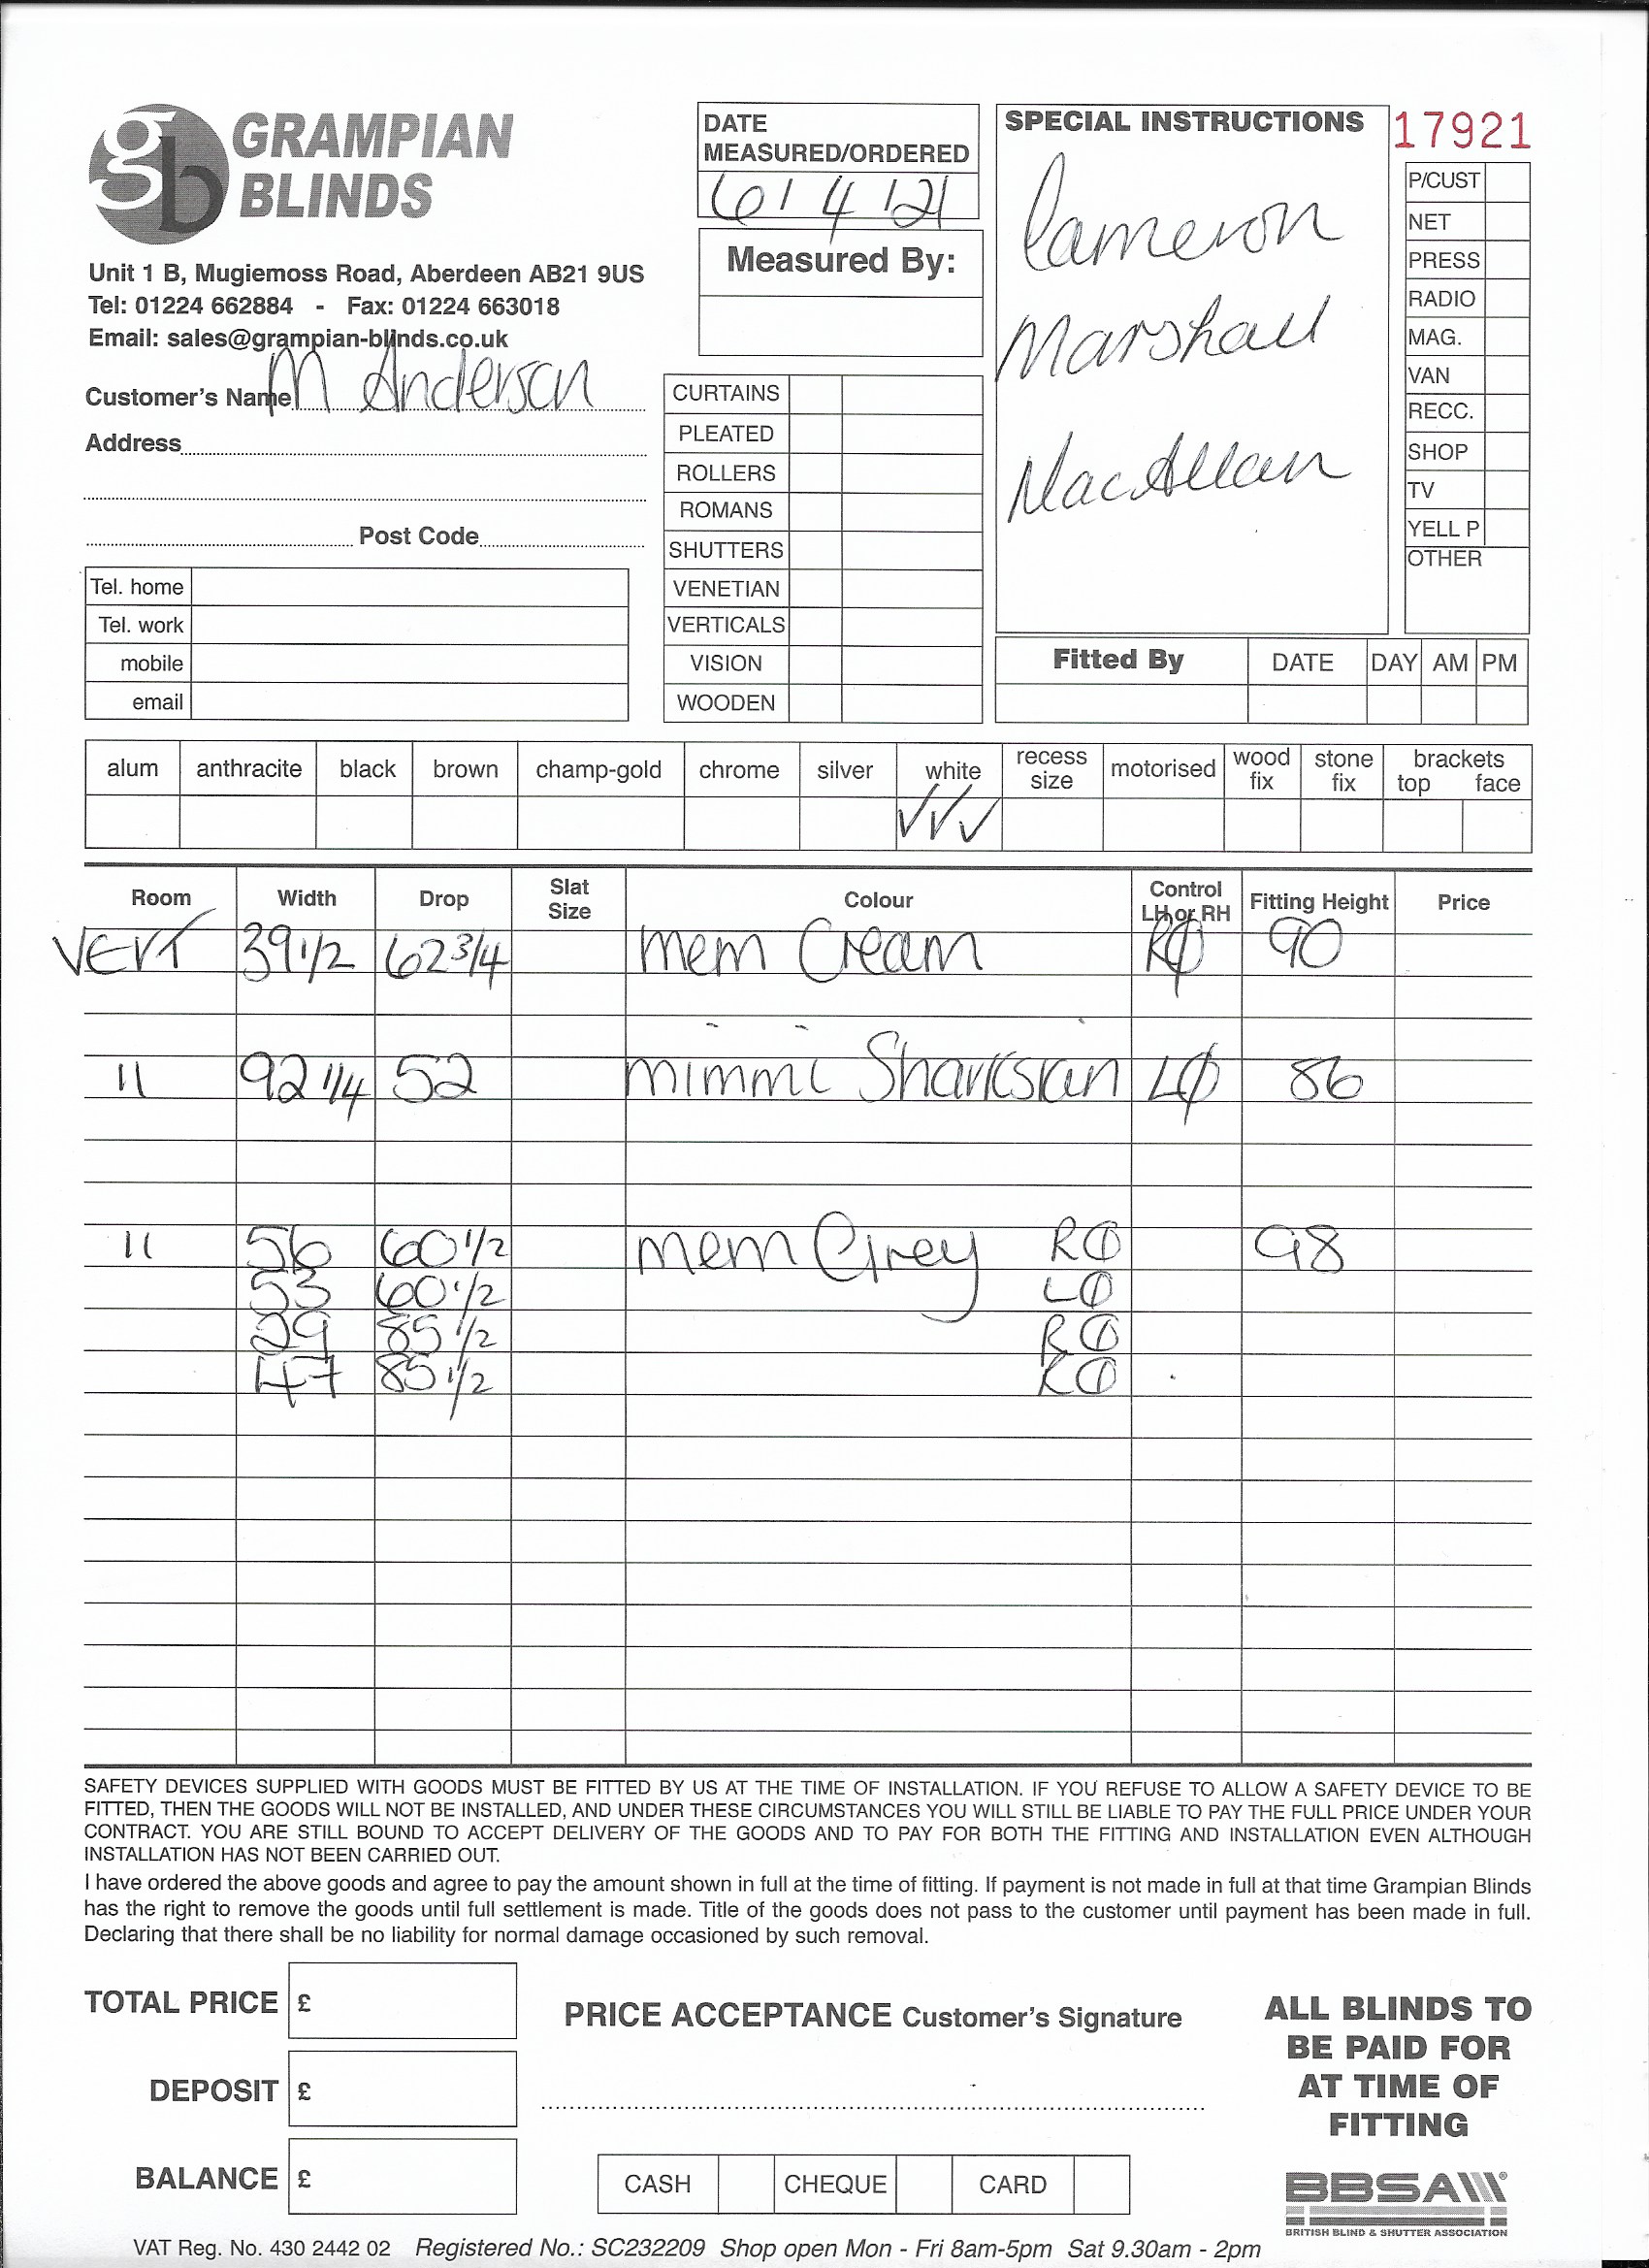 gb GRAMPIAN BLINDS
Unit 1 B, Mugiemoss Road, Aberdeen AB21 9US
Tel: 01224 662884 - Fax: 01224 663018
Email: sales@grampian-blinds.co.uk
Customer's Name M Anderson
Address
Post Code
Tel. home
Tel. work
mobile
email
DATE
MEASURED/ORDERED
6/4/21
Measured By:
CURTAINS
PLEATED
ROLLERS
ROMANS
SHUTTERS
VENETIAN
VERTICALS
VISION
WOODEN
SPECIAL INSTRUCTIONS
Cameron
Marshall
MacAllan
17921
P/CUST
NET
PRESS
RADIO
MAG.
VAN
RECC.
SHOP
TV
YELL P
OTHER
Fitted By DATE DAY AM PM
alum anthracite black brown champ-gold chrome silver white recess size motorised wood fix stone fix brackets top face
✓✓✓
Room Width Drop Slat Size Colour Control LH or RH Fitting Height Price
VERT 39 1/2 62 3/4 mem Cream RØ 90
11 92 1/4 52 mimmi Sharkskin LØ 86
11 56 60 1/2 mem Grey RØ 98
53 60 1/2 LØ
29 85 1/2 RØ
47 85 1/2 RØ
SAFETY DEVICES SUPPLIED WITH GOODS MUST BE FITTED BY US AT THE TIME OF INSTALLATION. IF YOU REFUSE TO ALLOW A SAFETY DEVICE TO BE
FITTED, THEN THE GOODS WILL NOT BE INSTALLED, AND UNDER THESE CIRCUMSTANCES YOU WILL STILL BE LIABLE TO PAY THE FULL PRICE UNDER YOUR
CONTRACT. YOU ARE STILL BOUND TO ACCEPT DELIVERY OF THE GOODS AND TO PAY FOR BOTH THE FITTING AND INSTALLATION EVEN ALTHOUGH
INSTALLATION HAS NOT BEEN CARRIED OUT.
I have ordered the above goods and agree to pay the amount shown in full at the time of fitting. If payment is not made in full at that time Grampian Blinds
has the right to remove the goods until full settlement is made. Title of the goods does not pass to the customer until payment has been made in full.
Declaring that there shall be no liability for normal damage occasioned by such removal.
TOTAL PRICE £
DEPOSIT £
BALANCE £
PRICE ACCEPTANCE Customer's Signature
CASH CHEQUE CARD
ALL BLINDS TO
BE PAID FOR
AT TIME OF
FITTING
BBSA
BRITISH BLIND & SHUTTER ASSOCIATION
VAT Reg. No. 430 2442 02 Registered No.: SC232209 Shop open Mon - Fri 8am-5pm Sat 9.30am - 2pm